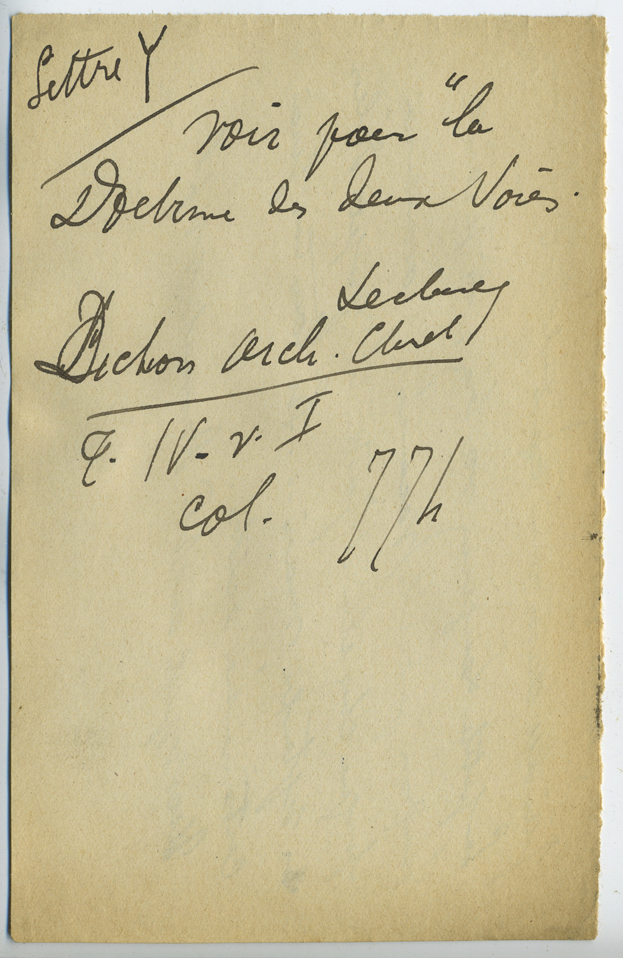 Lettre Y
voir pour "la
Doctrine des deux Voies.
Leclercq
Diction Arch. Chret
T. IV. v. I
col. 774